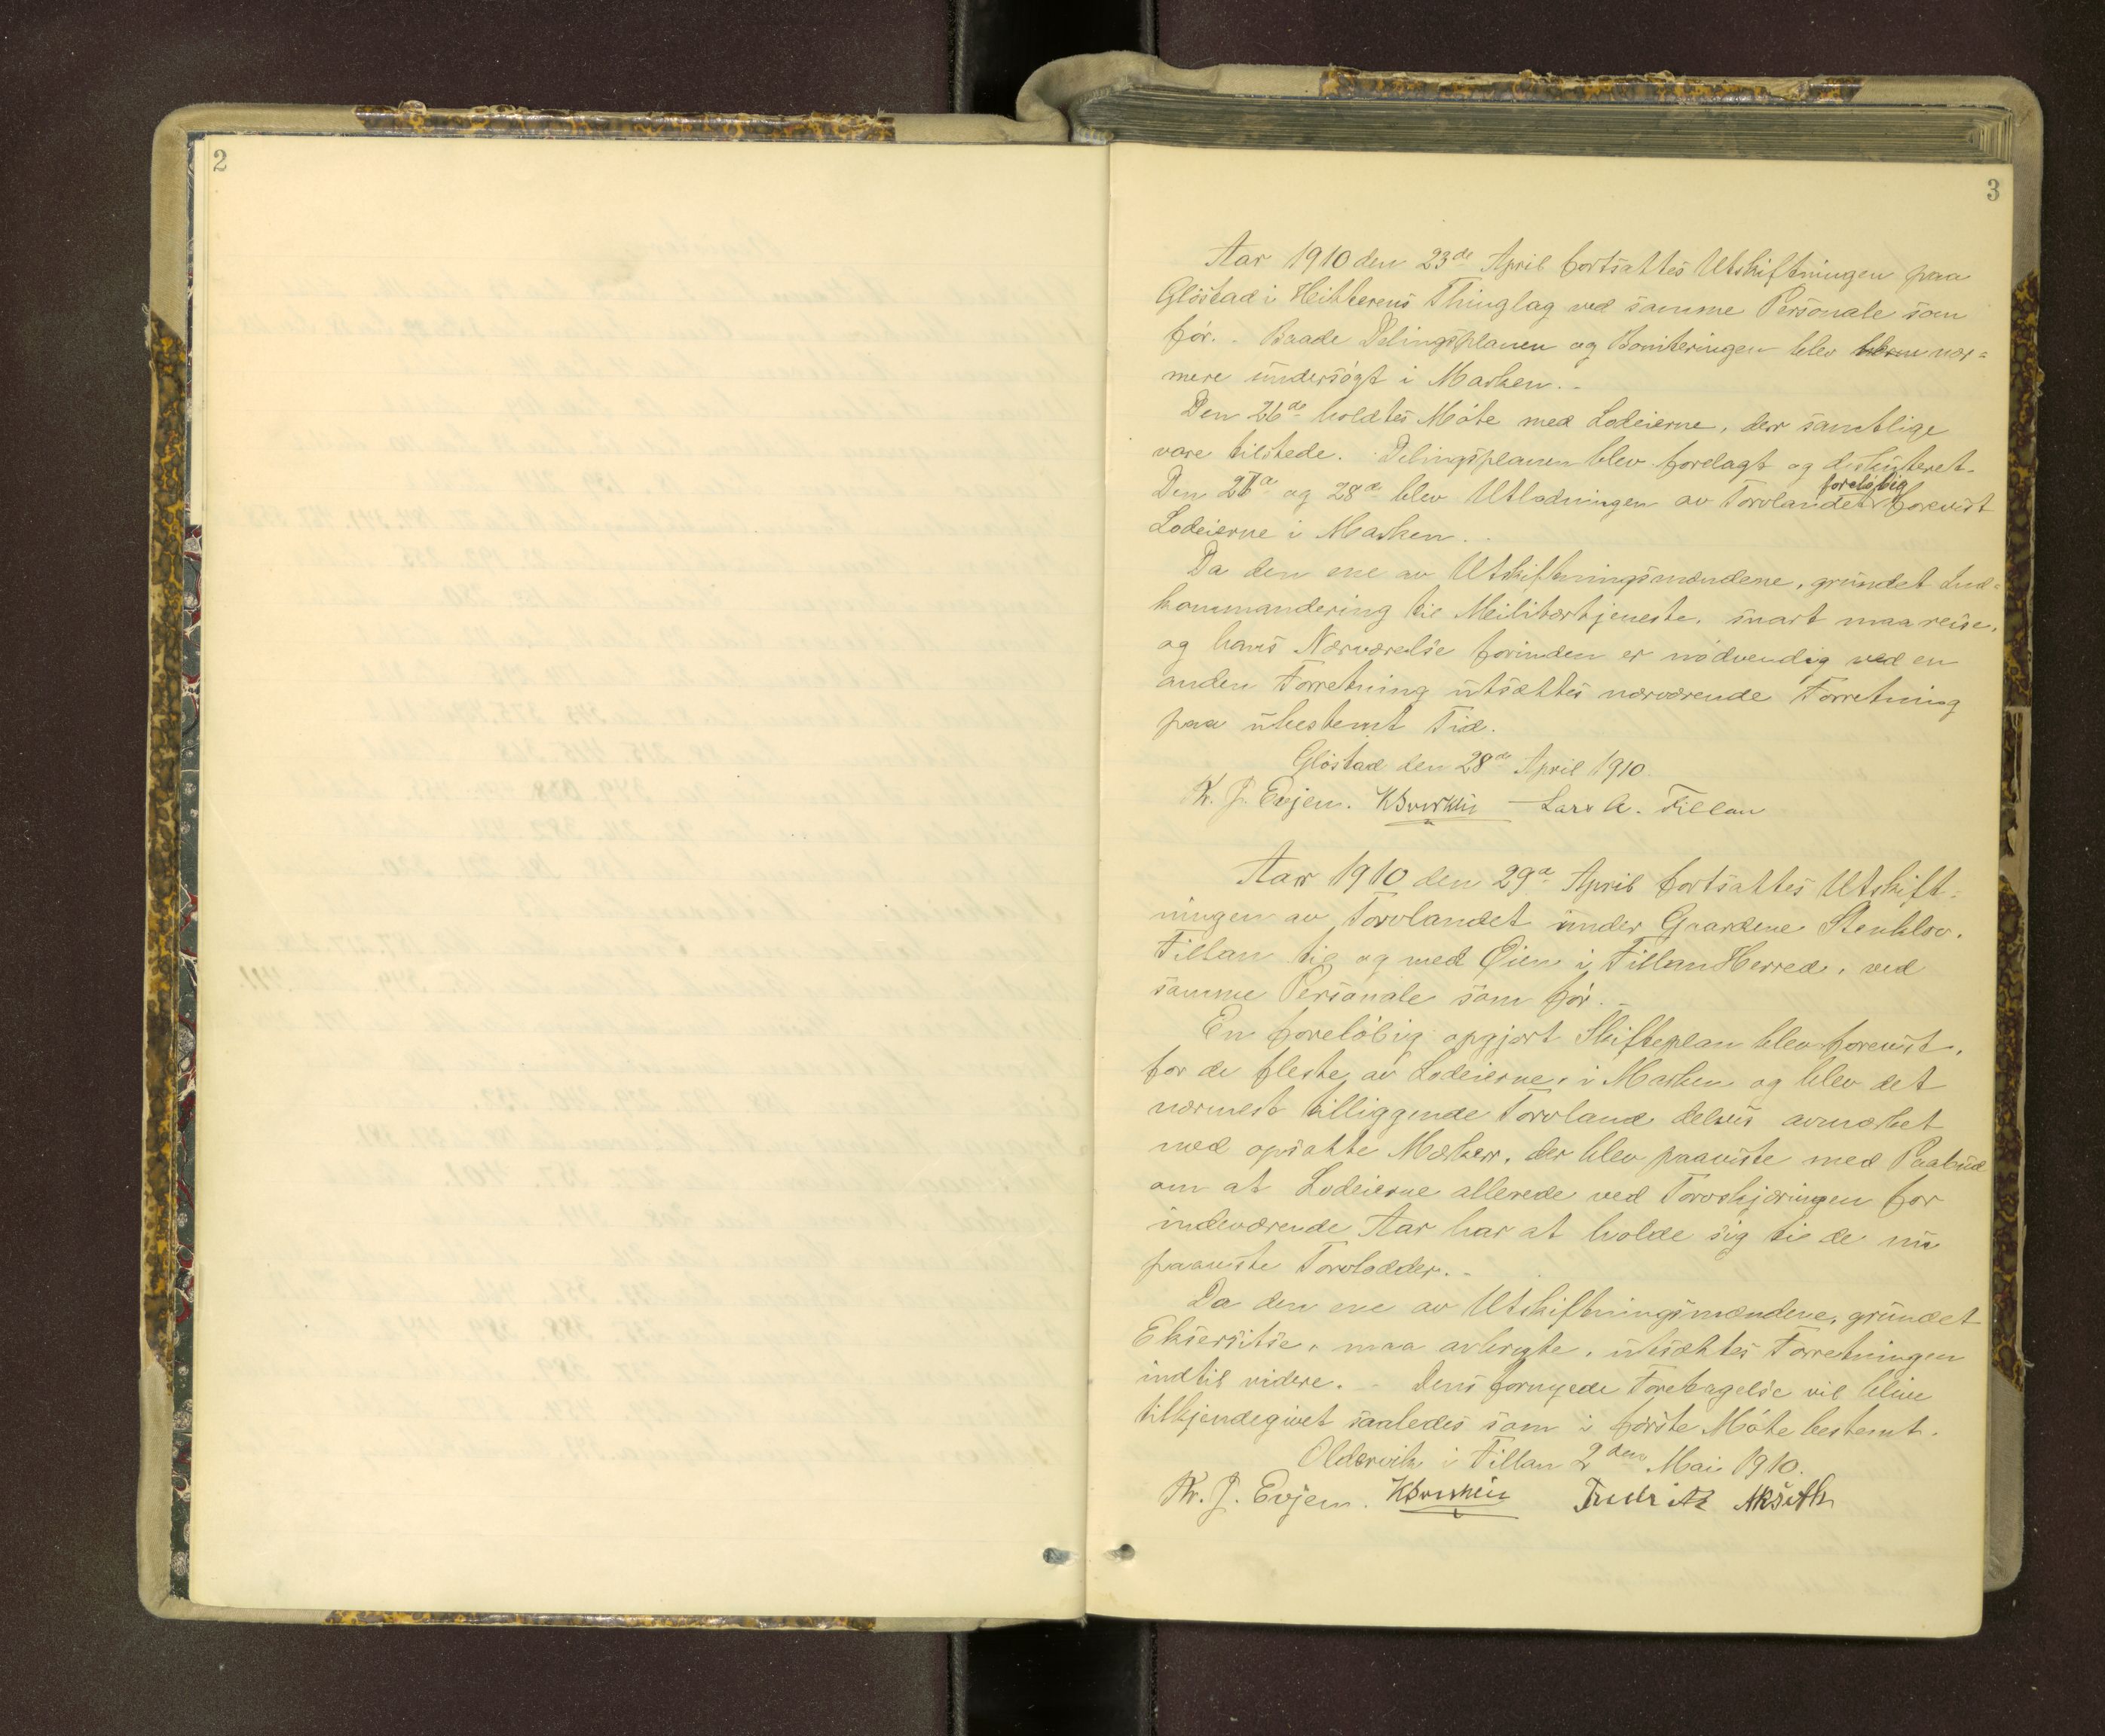 2
3
Aar 1910 den 23de April fortsattes Utskiftningen paa
Glöstad i Hitterens Thinglag ved samme Personale som
för. - Baade Delingsplanen og Boniteringen blev nær=
mere undersögt i Marken. -
Den 26de holdtes Möte med Lodeierne, der samtlige
vare tilstede. Delingsplanen blev forelagt og diskuteret.
foreløbig
Den 27d og 28d blev Utlodningen av Torvlandet forevist
Lodeierne i Marken. -
Da den ene av Utskiftningsmændene, grundet Ind=
kommandering til Meilitærtjeneste, snart maa reise,
og hans Nærværelse forinden er nödvendig ved en
anden Forretning utsættes nærværende Forretning
paa ubestemt Tid.
Glöstad den 28de April 1910.
K. J. Evjem. Lars A. Fillan
Aar 1910 den 29d April fortsattes Utskift=
ningen av Torvlandet under Gaardene Stenklov.
Fillan til og med Öien i Fillan Herred, ved
samme Personale som för. -
En forelöbig opgjort Skifteplan blev forevist,
for de fleste av Lodeierne, i Marken og blev det
nærmest tilliggende Torvland delvis avmerket
med opsatte Merker, der blev paaviste med Paabud
om at Lodeierne allerede ved Torvskjæringen for
indeværende Aar har at holde sig til de nu
paaviste Torvlodder. -
Da den ene av Utskiftningsmændene, grundet
Ekserssitse, maa avbryte, utsættes Forretningen
indtil videre. - Dens fornyede Foretagelse vil blive
tilkjendegivet saaledes som i förste Möte bestemt.
Oldervik i Fillan 2den Mai 1910.
K. J. Evjem.